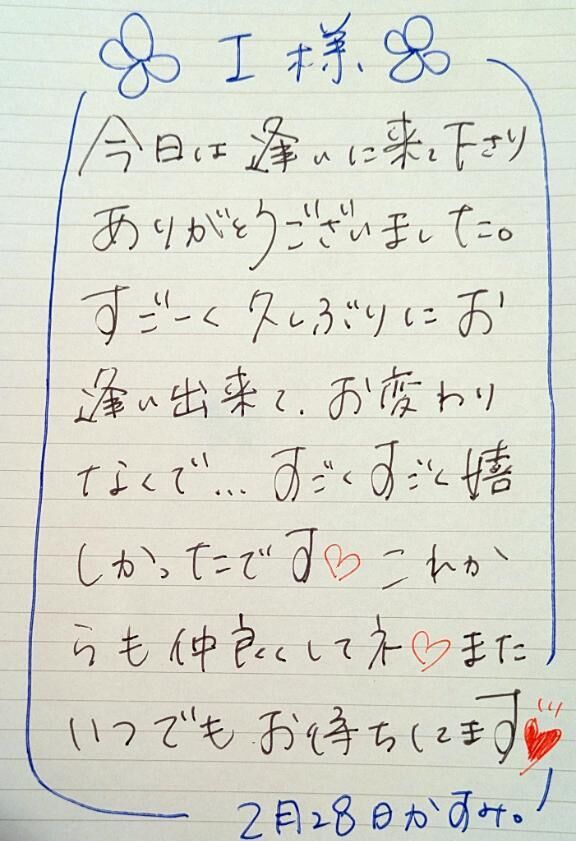 I様
今日は逢いに来て下さり
ありがとうございました。
すごーく久しぶりにお
逢い出来て、お変わり
なくで…すごくすごく嬉
しかったです♡これか
らも仲良くしてネ♡また
いつでもお待ちしてます♥
2月28日かすみ。